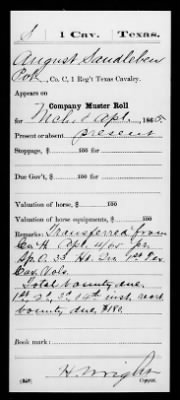 S | 1 Cav. | Texas.
August Sandleben
Co. C, 1 Reg't Texas Cavalry.
Appears on
Company Muster Roll
for Mch. & Apl., 1865.
Present or absent present
Stoppage, $ 100 for
Due Gov't, $ 100 for
Valuation of horse, $ 100
Valuation of horse equipments, $ 100
Remarks: Transferred from
Co. H Apl. 4/65 pr.
Sp. O. 33 Hd. Qrs. 1st Tex.
Cav. Vols.
Total bounty due
1st, 2d, 3d, 14th inst. 
bounty due, $180.
Book mark:
H. Wright
Copyist.